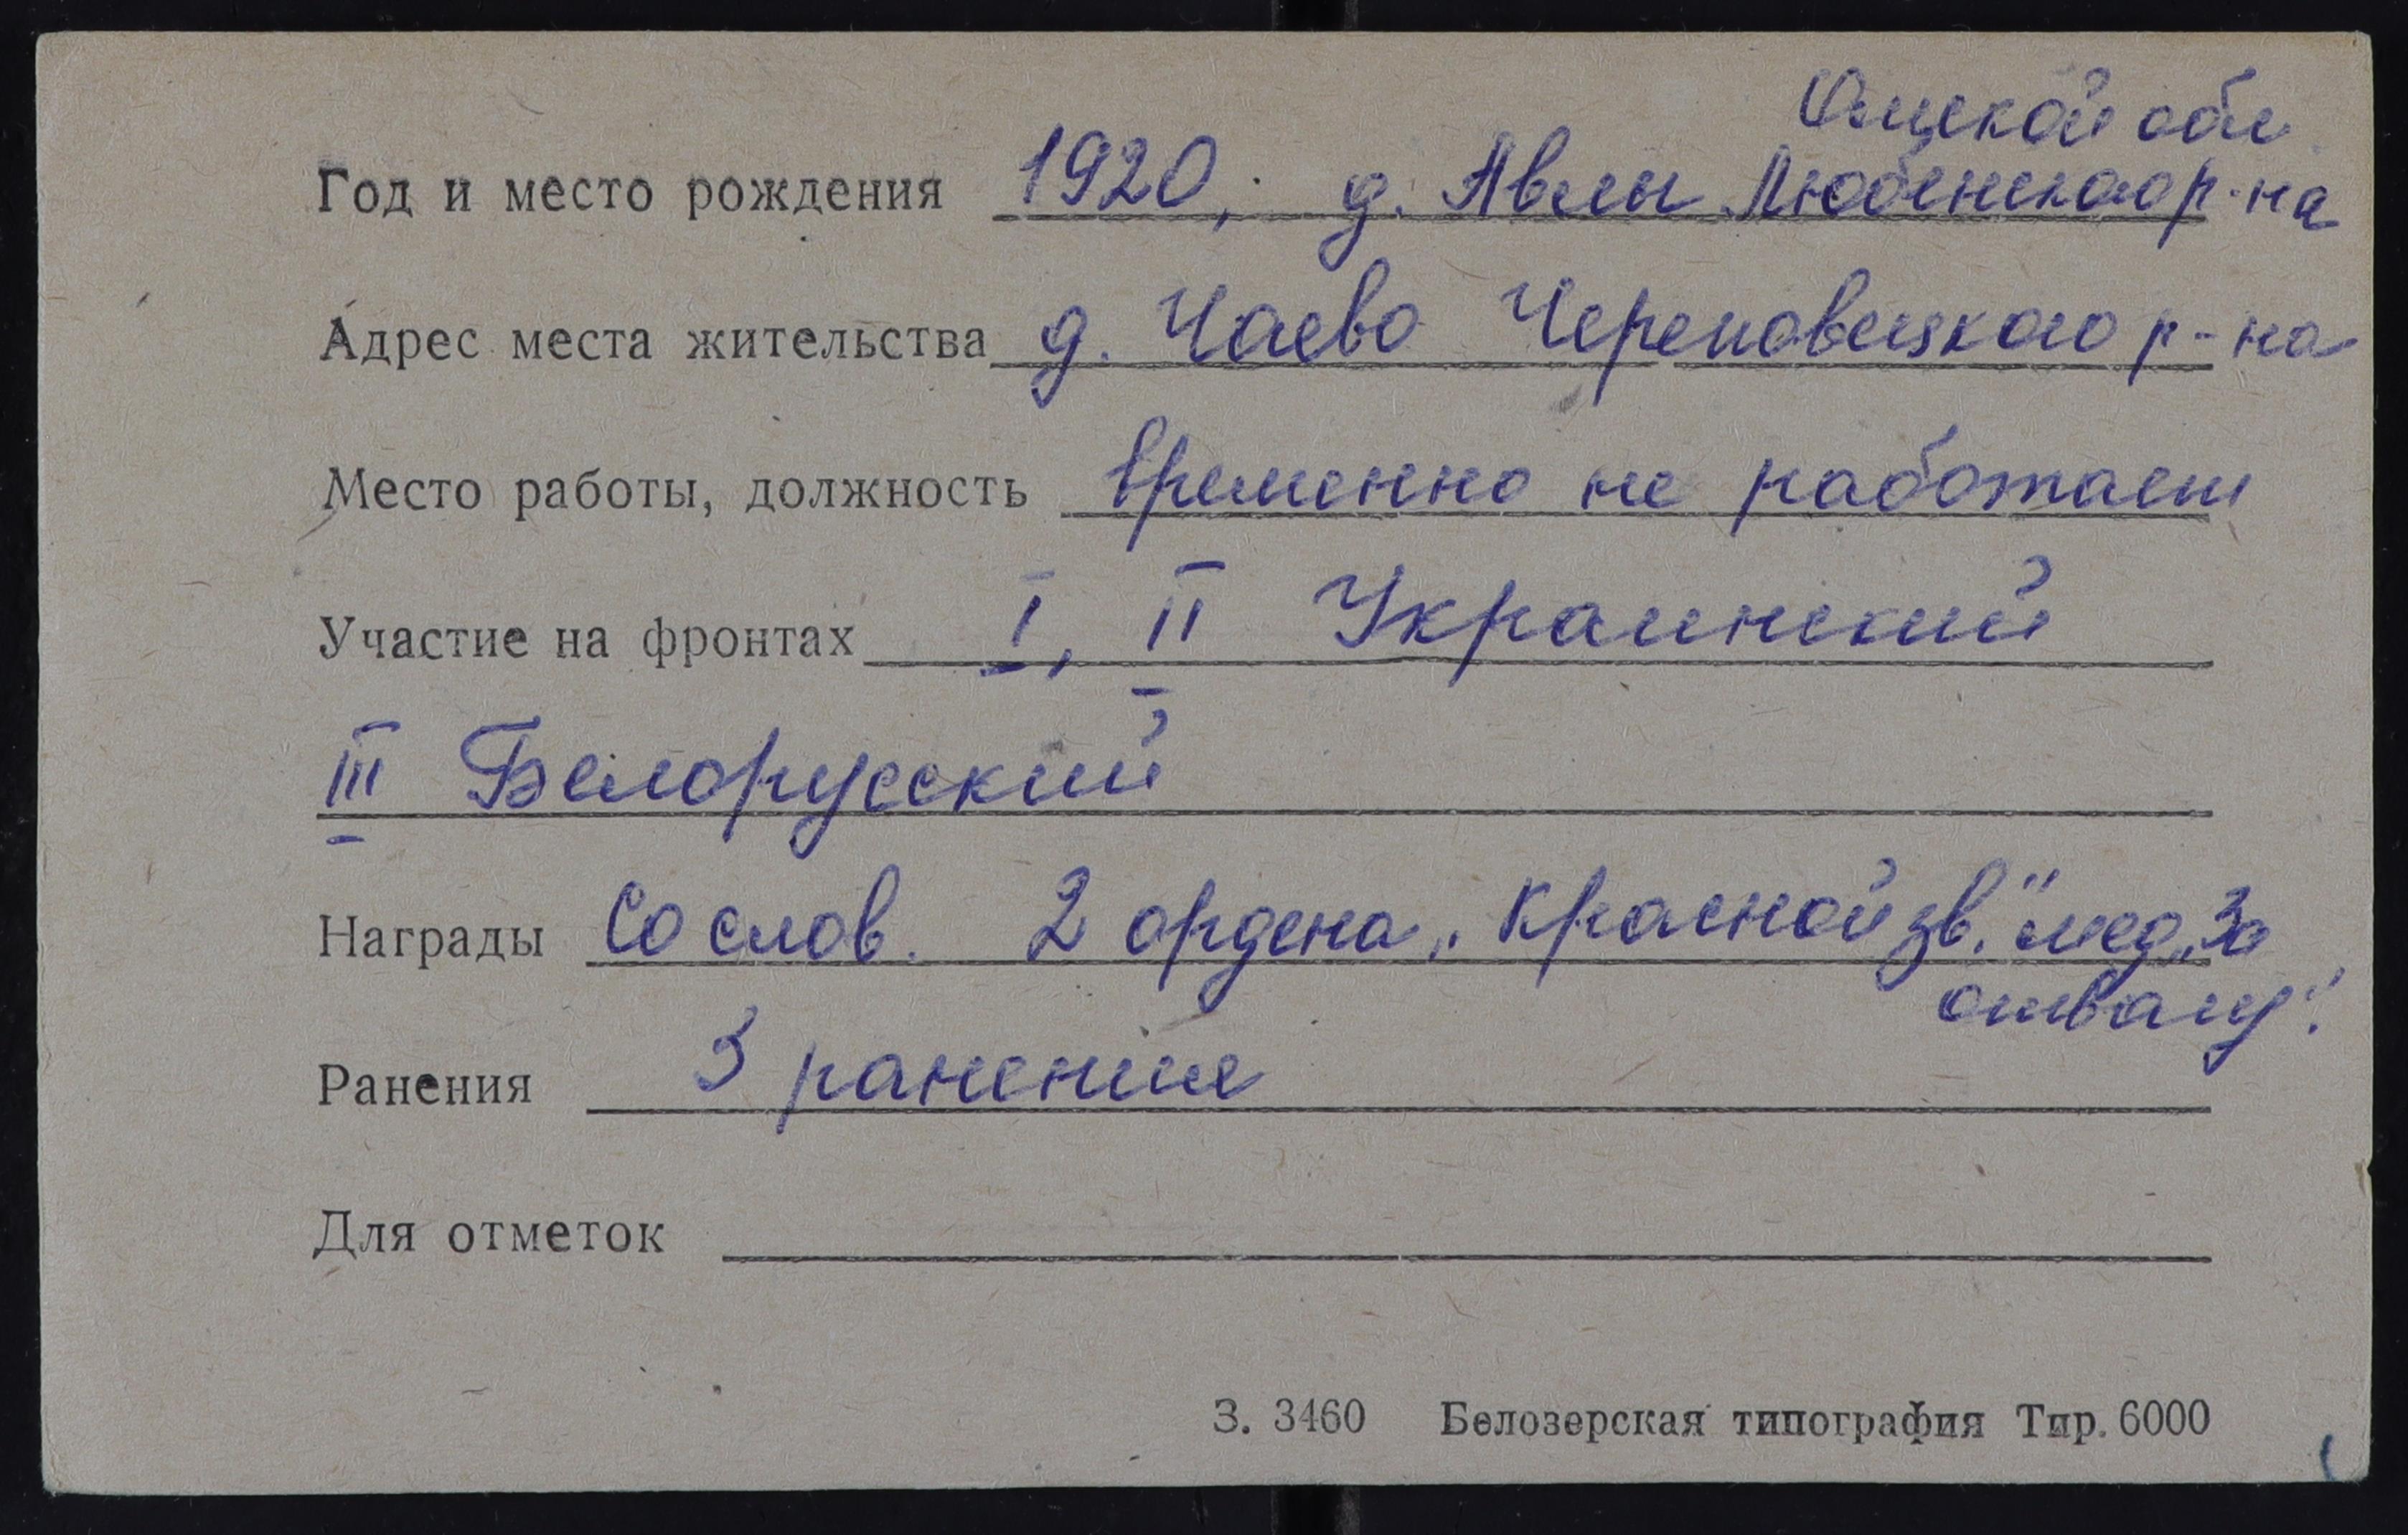 Омской обл
Год и место рождения 1920, д. Авлы Любенскаор-на
Адрес места жительства д. Чаево Череповецкого р-на
Место работы, должность временно не работает
Участие на фронтах I, II Украинский
III Белорусский
Награды Со слов. 2 ордена „Красной зв." мед. „За
отвагу".
Ранения 3 ранения
Для отметок
З. 3460 Белозерская типография Тир. 6000